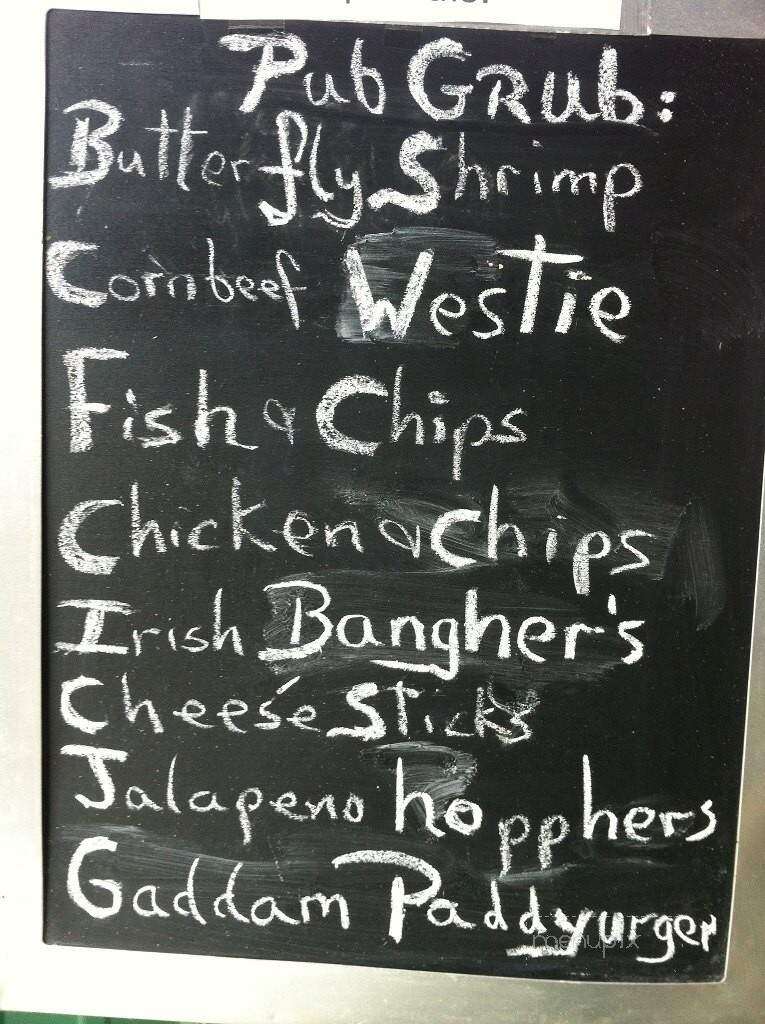 Pub GRUB:
Butterfly Shrimp
Cornbeef Westie
Fish & Chips
Chicken & Chips
Irish Bangher's
Cheese Sticks
Jalapeno hopphers
Gaddam Paddyurger
menupix